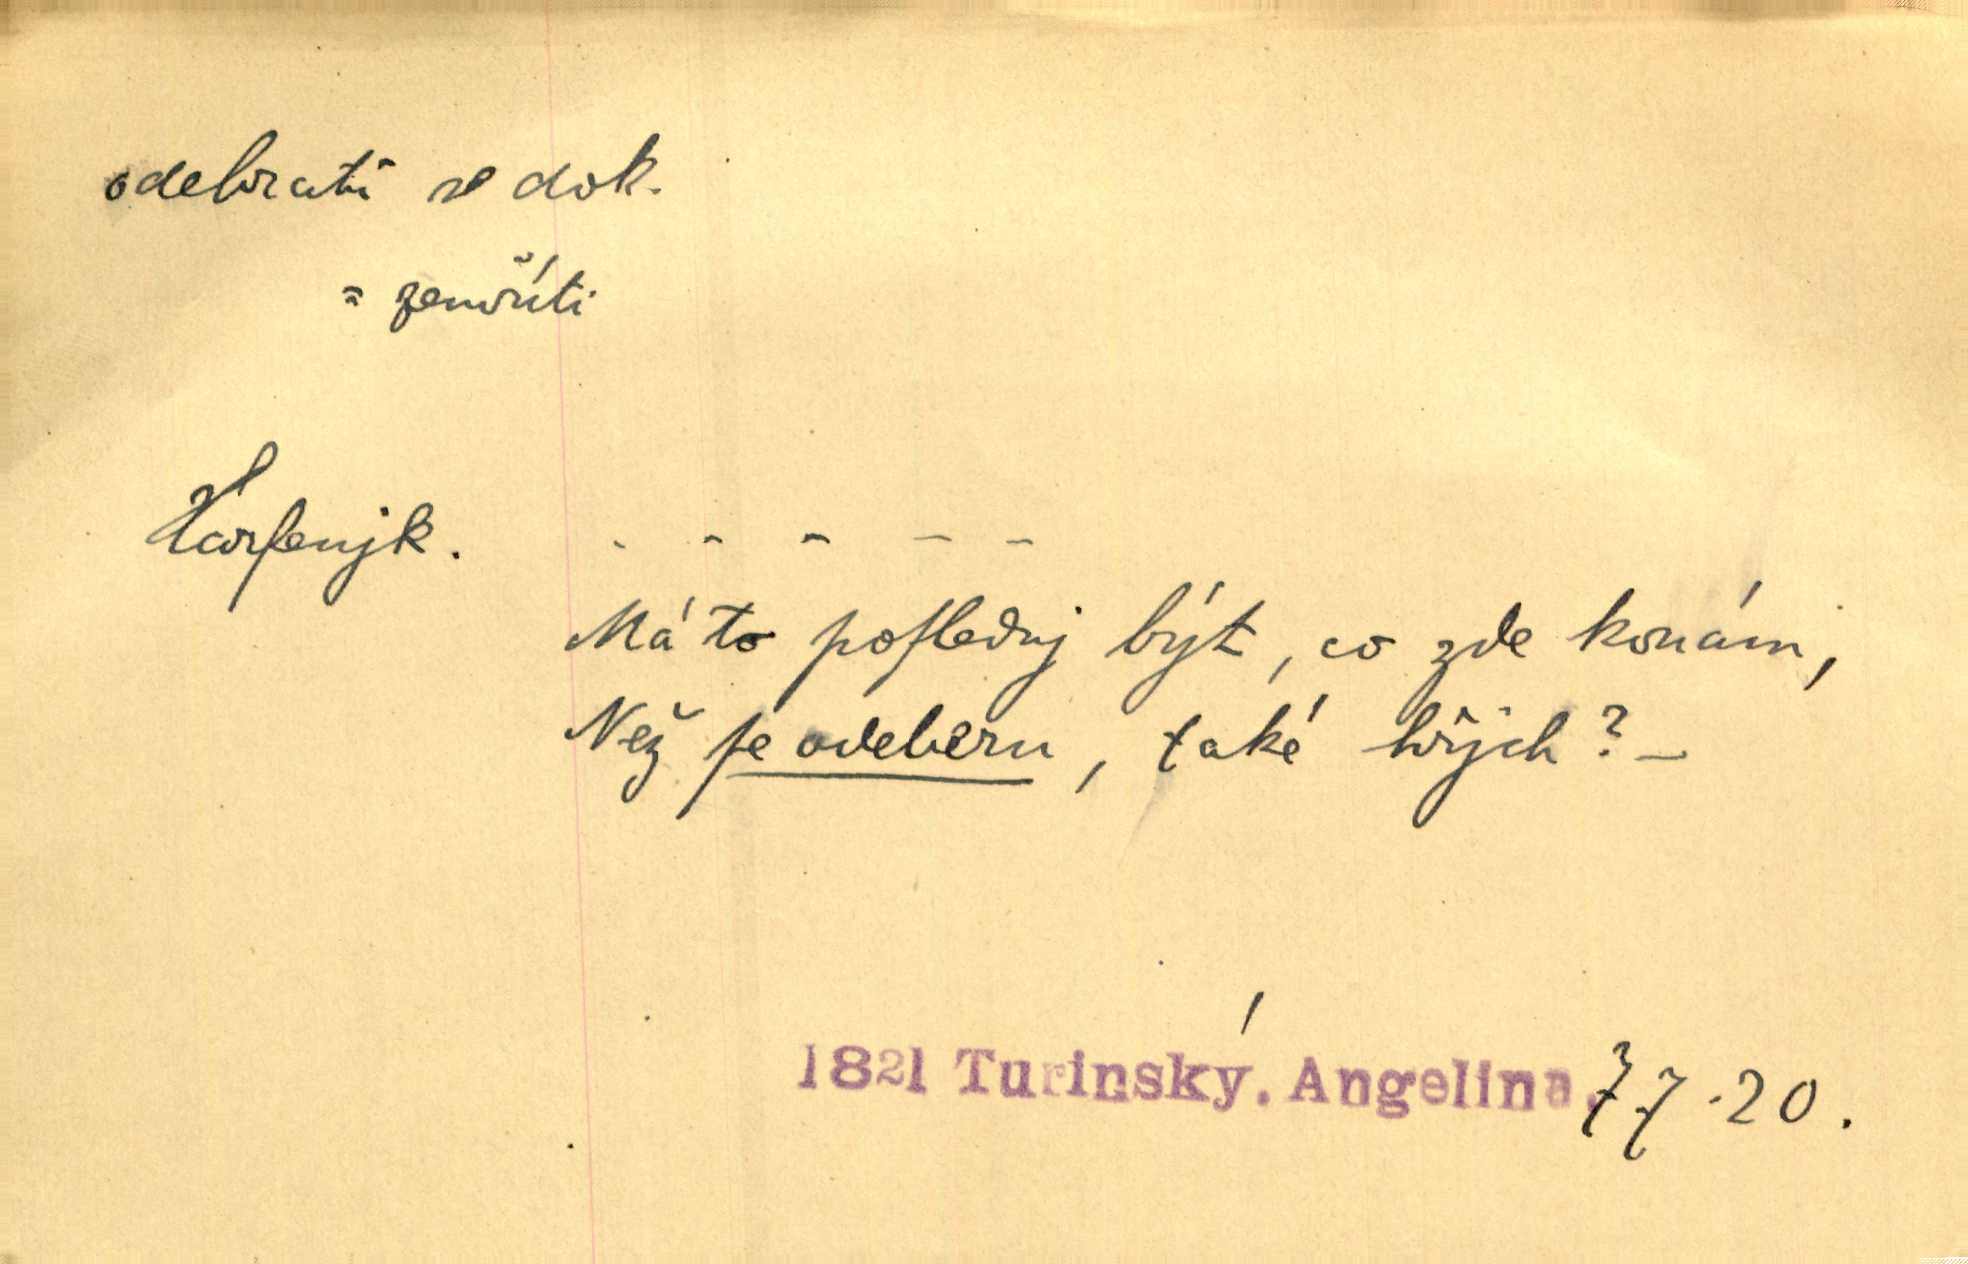 odebrati se dok.
= zemříti
Harfenjk. - - - - -
Má to poſlednj být, co zde konám,
Než ſe odeberu, také hřjch? -
1821 Turinský, Angelina. 77.20.